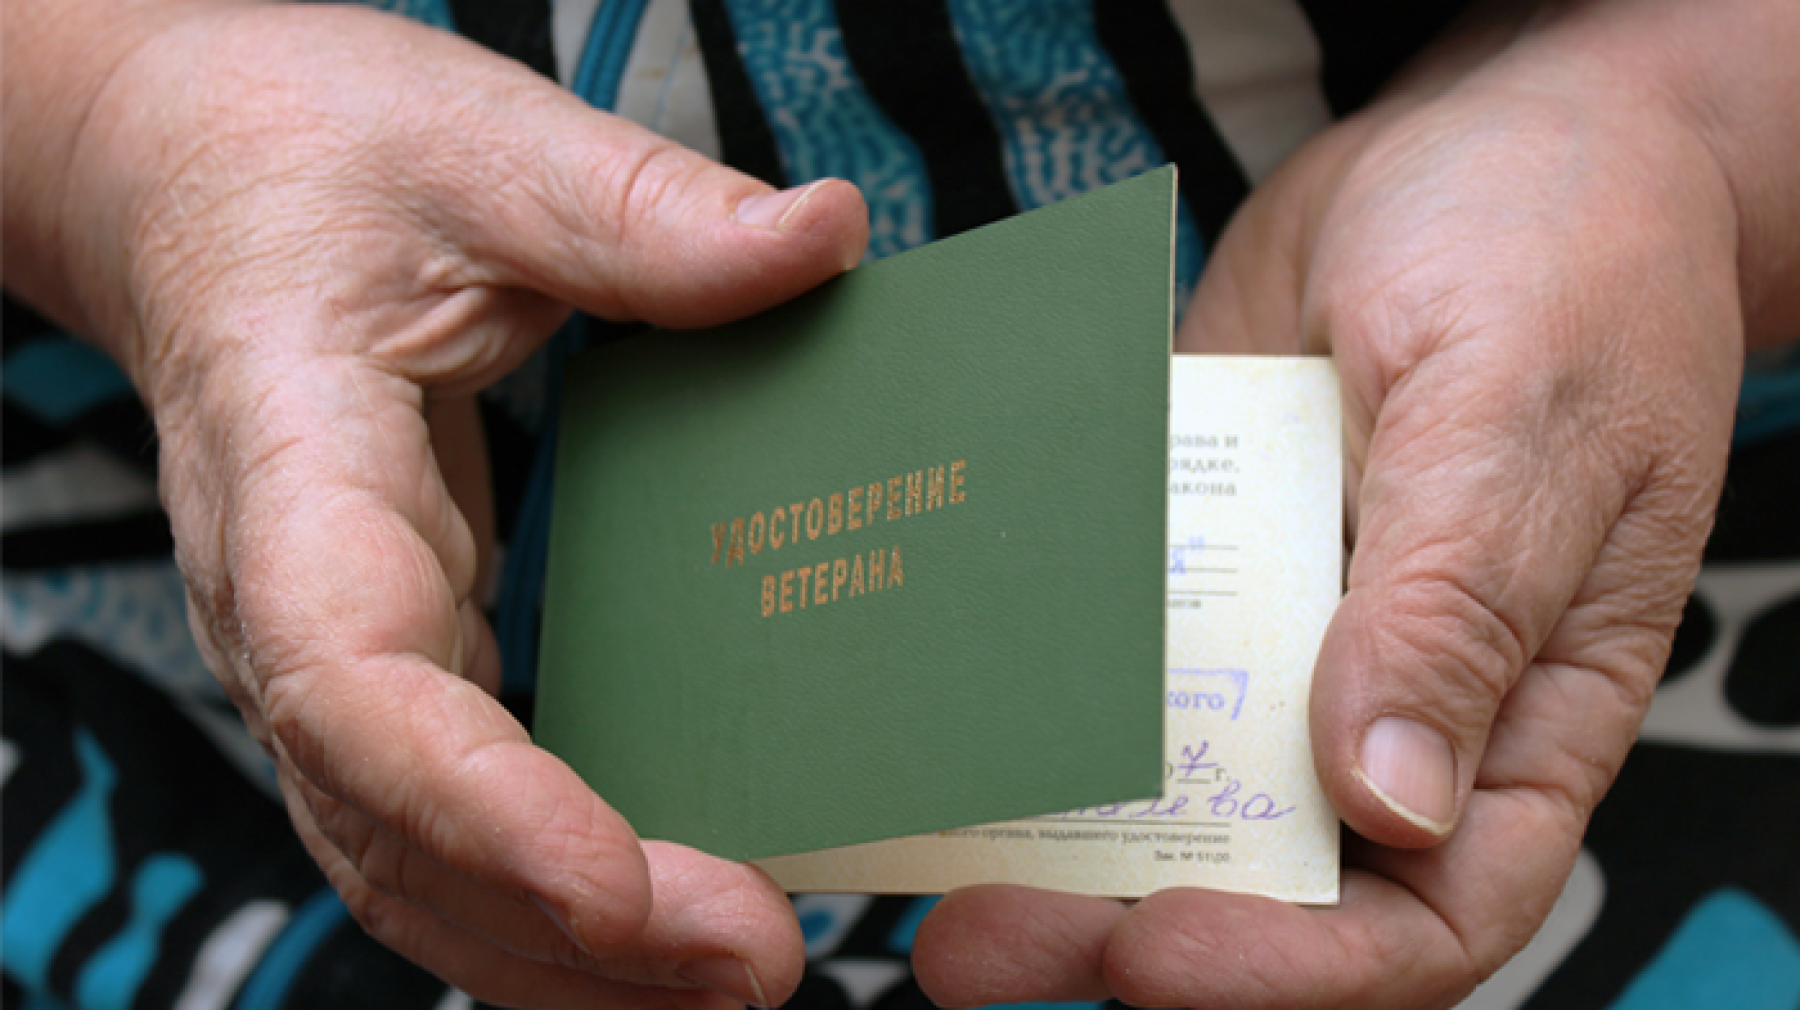 УДОСТОВЕРЕНИЕ
ВЕТЕРАНА
рава и
рядке,
акона
кого
7 г.
лева
органа, выдавшего удостоверение
Зак. №